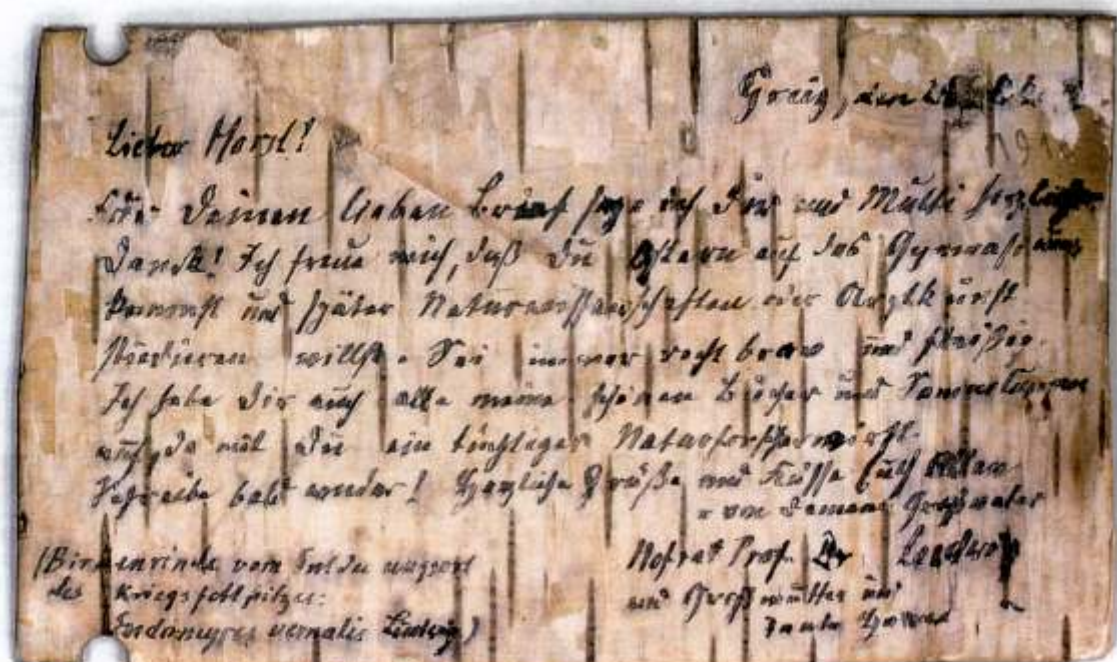 Greiz, den
Lieber Horst!
Für Deinen lieben Brief sage ich Dir und Mutti herzlichen
Dank! Ich freue mich, daß Du Ostern auf das Gymnasium
kommst und später Naturwissenschaften oder Arztkunst
studieren willst. Sei immer recht brav und fleißig.
Ich habe Dir auch alle meine schönen Bücher und Sammlungen
auf, da mit Du ein tüchtiger Naturforscher wirst.
Schreibe bald wieder! Herzliche Grüße und Küsse Euch Allen
von Deinem Großvater
Hofrat Prof. Dr Ludwig
und Großmutter und
Tante
(Birkenrinde vom
des Kriegsfettpilzes:
Endomyces vernalis Ludwig)